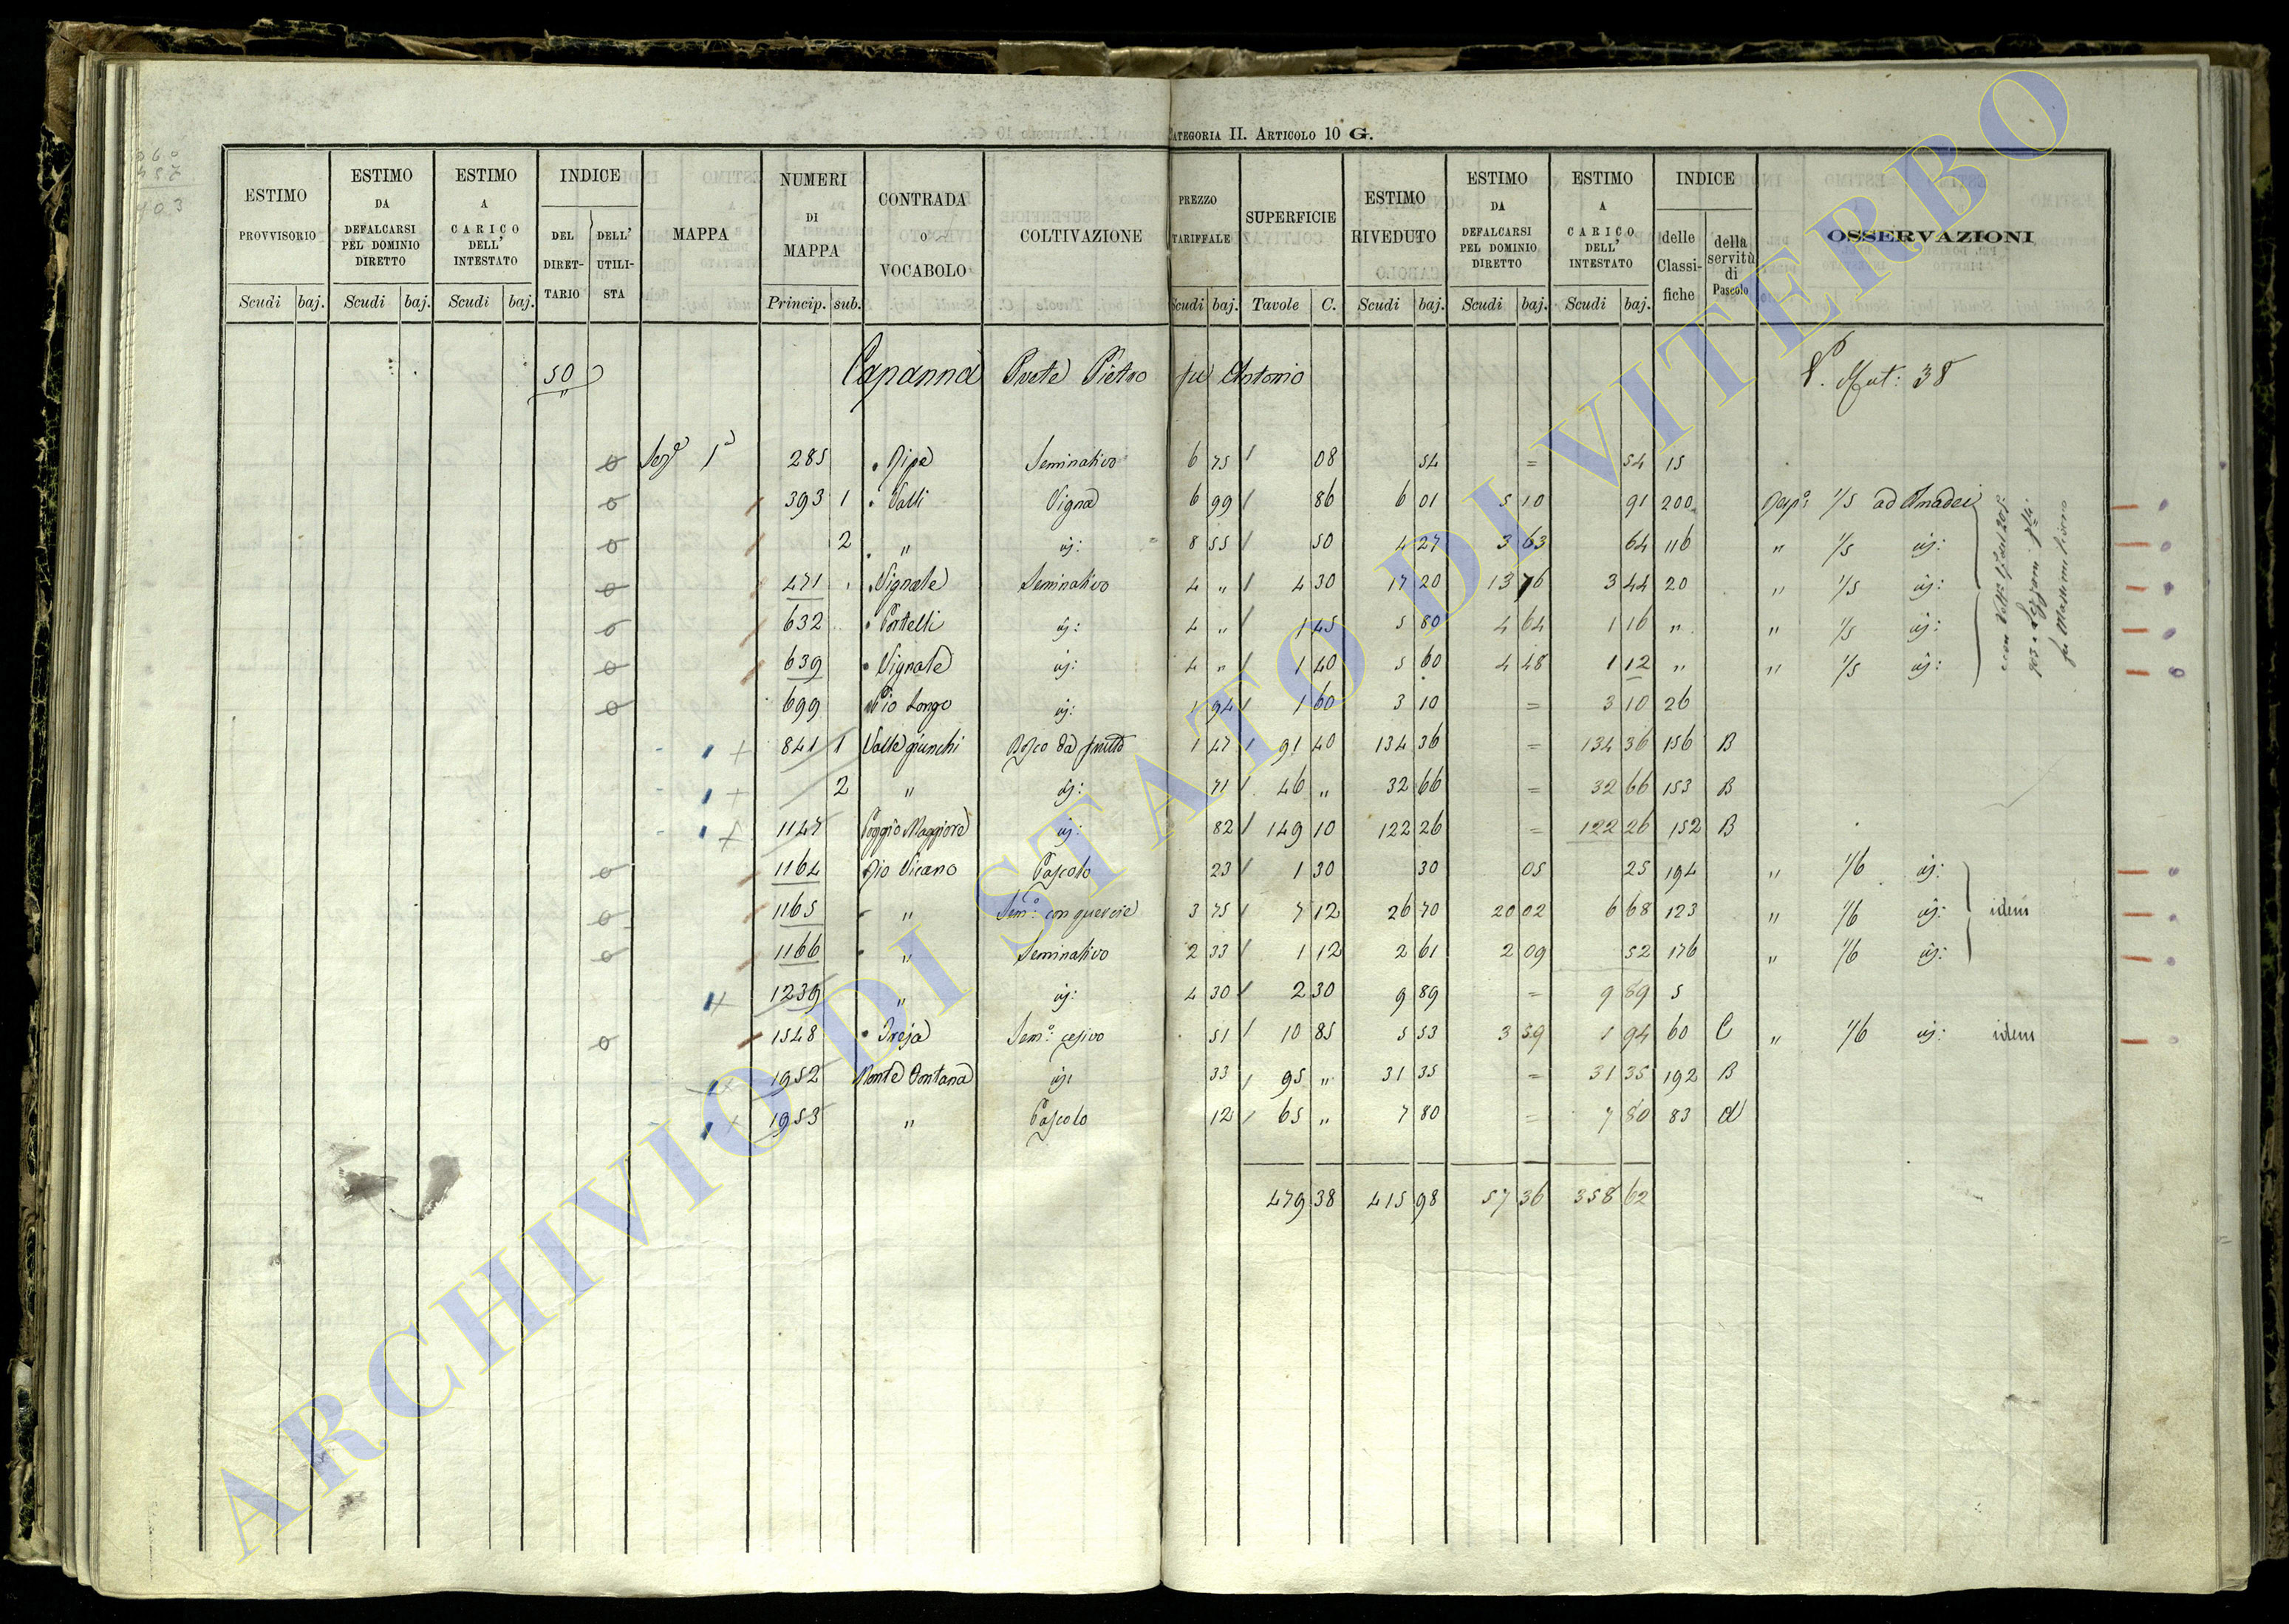 CATEGORIA II. ARTICOLO 10 G.
ESTIMO PROVVISORIO Scudi baj. ESTIMO DA DEFALCARSI PEL DOMINIO DIRETTO Scudi baj. ESTIMO A CARICO DELL' INTESTATO Scudi baj. INDICE DEL DIRETTARIO DELL' UTILISTA MAPPA NUMERI DI MAPPA Princip. sub. CONTRADA O VOCABOLO COLTIVAZIONE PREZZO TARIFFALE Scudi baj. SUPERFICIE Tavole C. ESTIMO RIVEDUTO Scudi baj. ESTIMO DA DEFALCARSI PEL DOMINIO DIRETTO Scudi baj. ESTIMO A CARICO DELL' INTESTATO Scudi baj. INDICE delle Classifiche della servitù di Pascolo OSSERVAZIONI
50 Capanna Prete Pietro fu Antonio Mut: 38
Seze 1a 285 Ripa Seminativo 6 75 08 54 = 54 15
393 1 Valli Vigna 6 99 86 6 01 5 10 91 200 Rispa 1/5 ad Amadei
2 " id: 8 55 50 4 27 3 63 64 116 " 1/5 id:
471 Vignale Seminativo 4 " 4 30 17 20 13 76 3 44 20 " 1/5 id:
632 Portelli id: 4 " 1 45 5 80 4 64 1 16 " " 1/5 id:
639 Vignale id: 4 " 1 40 5 60 4 48 1 12 " " 1/5 id:
699 Rio Longo id: 1 94 1 60 3 10 = 3 10 26
841 1 Valle giunchi Bosco da frutto 1 47 91 40 134 36 = 134 36 156 B
2 " id: 71 46 " 32 66 = 32 66 153 B
1147 Poggio Maggiore id: 82 149 10 122 26 = 122 26 152 B
1164 Rio Vicano Pascolo 23 1 30 30 05 25 194 " 1/6 id:
1165 " Semo: con quercie 3 75 7 12 26 70 20 02 6 68 123 " 1/6 id: idem
1166 " Seminativo 2 33 1 12 2 61 2 09 52 176 " 1/6 id:
1239 " id: 4 30 2 30 9 89 = 9 89 5
1548 Treja Semo: cesivo 51 10 85 5 53 3 59 1 94 60 C " 1/6 id: idem
1952 Monte Fontana id: 33 95 " 31 35 = 31 35 192 B
1953 " Pascolo 12 65 " 7 80 = 7 80 83 A
479 38 415 98 57 36 358 62
ARCHIVIO DI STATO DI VITERBO